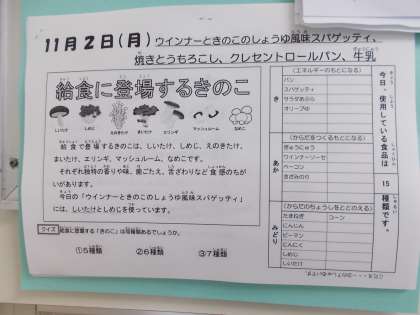 11月2日(月) ウインナーときのこのしょうゆ風味スパゲッティ、
焼きとうもろこし、クレセントロールパン、牛乳
給食に登場するきのこ
しいたけ しめじ えのきたけ まいたけ エリンギ マッシュルーム なめこ
給食で登場するきのこは、しいたけ、しめじ、えのきたけ、
まいたけ、エリンギ、マッシュルーム、なめこです。
それぞれ独特の香りや味、歯ごたえ、舌ざわりなど食感のちが
いがあります。
今日の「ウインナーときのこのしょうゆ風味スパゲッティ」
には、しいたけとしめじを使っています。
クイズ 給食に登場する「きのこ」は何種類あるでしょうか。
①5種類 ②6種類 ③7種類
今日、使用している食品は 15 種類です。
き
(エネルギーのもとになる)
パン
スパゲッティ
サラダあぶら
オリーブゆ
あか
(からだをつくるもとになる)
ぎゅうにゅう
ウインナーソーセ
ベーコン
きざみのり
みどり
(からだのちょうしをととのえる)
たまねぎ コーン
にんじん
ピーマン
にんにく
しめじ
しいたけ